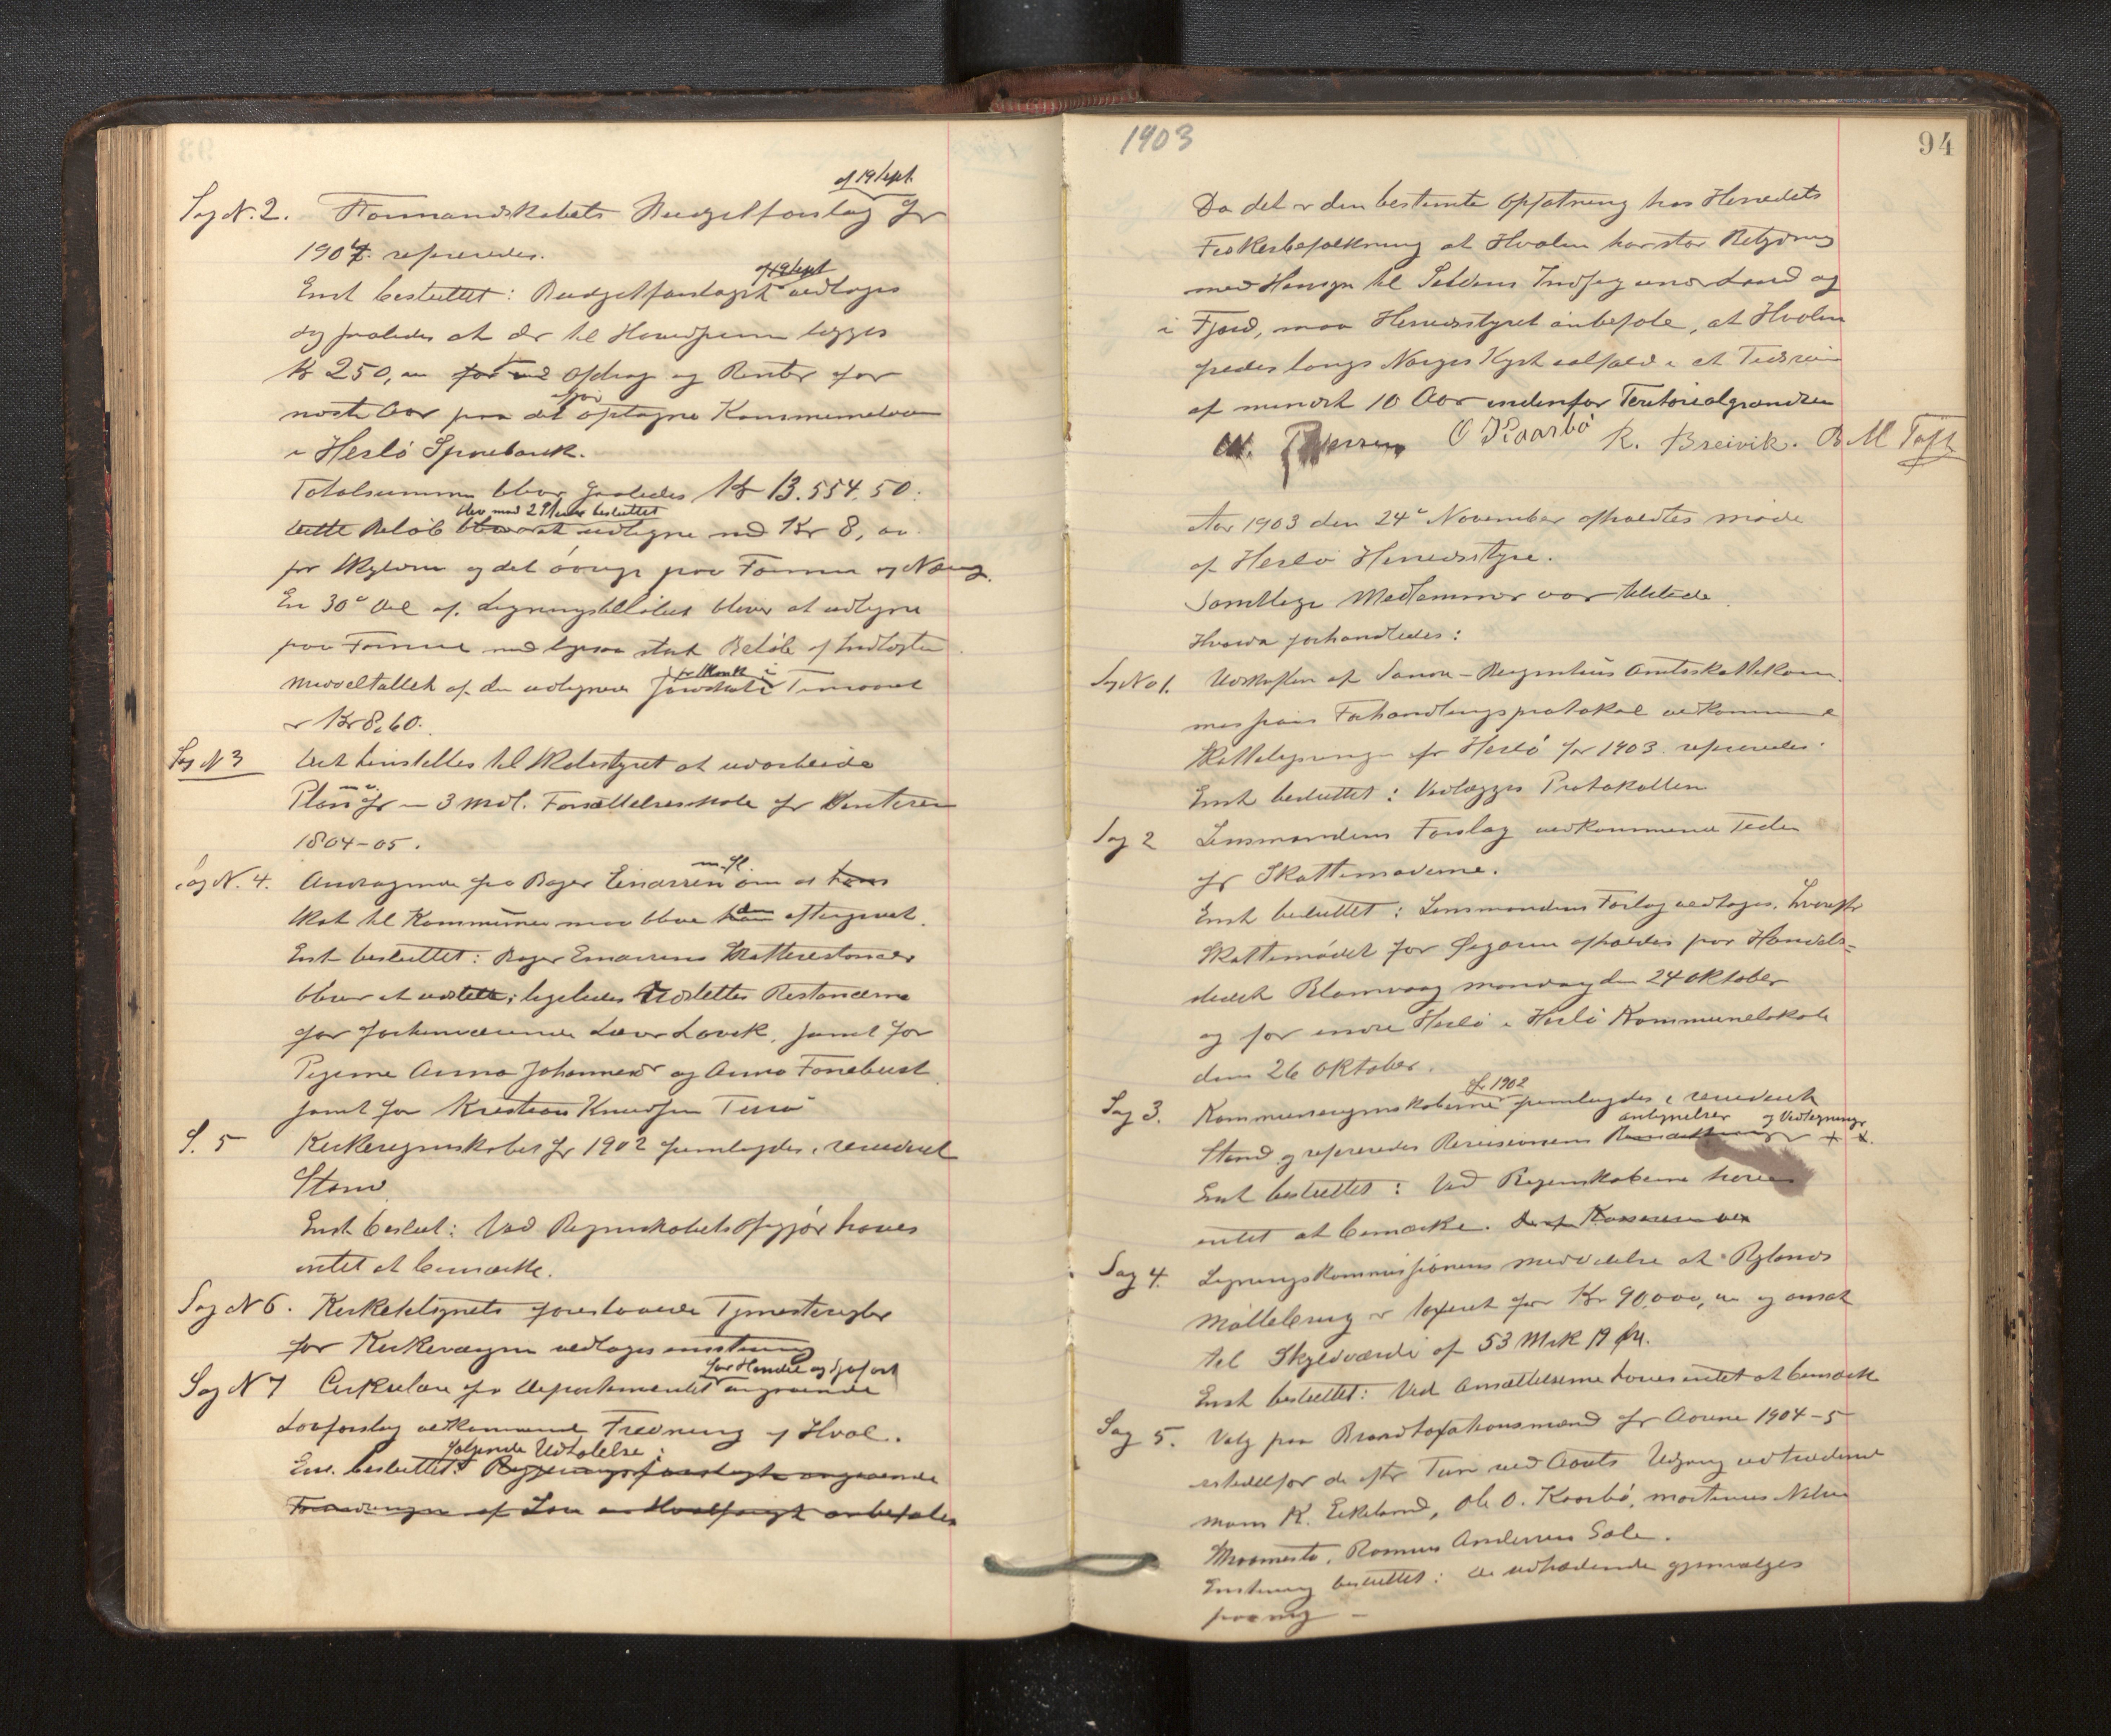 af 19 Sept.
Sag N. 2. Formandskabets Budgetforslag for
1904 refereredes.
af 19 Sept
Enst besluttet: Budgetforslaget vedtages
dog saaledes at der til Hovedsum lægges
Kr 250, for Afdrag og Renter for
næste Aar paa det optagne Kommunelaan
i Herlö Sparebank.
Totalsummen bliver saaledes Kr 13.554.50.
blev med besluttet
Dette Beløb at udligne med Kr 8,
pr Skyldm og det övrige paa Formue og Næring.
En 30te Del af Ligningsbeløbet bliver at udligne
paa Formue med ligesaa stort Beløb af Indtægten
Middeltallet af den udlignede
er Kr 8,60.
Sag N 3 Det henstilles til Skolestyret at udarbeide
Plan for 3 Mdl. Forsættelsesskole for Vinteren
1804-05.
m. fl.
Sag N. 4. Andragende fra Roger Einarsen om at hans
Skat til Kommunen maa blive eftergivet.
Enst besluttet: Roger Einarsens Skatterestancer
bliver at udslette; ligeledes udslettes Restancerne
for forhenværende Lavik, samt for
Pigerne Anna Johannesdr og Anna Fonebust
samt for Kristian Knudsen
S. 5 Kirkeregnskabet for 1902 fremlagdes i revideret
Stand
Enst beslut: Ved Regnskabets Afgjør haves
intet at bemærke.
Sag N 6. Kirketilsynets foreslaaede Tjenesteregler
for Kirkeværgen vedtages enstemmig
for Handel og Sjøfart
Sag N 7 Cirkulære fra Departementet angaaende
Lovforslag vedkommende Fredning af Hval.
følgende Udtalelse:
Ens. besluttet: Regjeringsforslaget angaaende
Forandringen af Lov om Hvalfangst anbefales
1903
94
Da det er den bestemte Opfatning hos Herredets
Fiskerbefolkning at Hvalen har stor Betydning
med Hensyn til Sildens Indsig under Land og
i Fjord, maa Herredsstyret anbefale, at Hvalen
fredes langs Norges Kyst ialfald i et Tidsrum
af mindst 10 Aar indenfor Teritorialgrændsen
O Kaarbö R. Breivik. B M Toft
Aar 1903 den 24de November afholdtes møde
af Herlö Herredsstyre.
Samtlige Medlemmer var tilstede.
Hvorda forhandledes:
Sag No 1. Udskriften af Søndre-Bergenhus Amtsskattekom-
missions Forhandlingsprotokol vedkommende
Skatteligningen for Herlö for 1903 refereredes.
Enst besluttet: Vedlægges Protokollen
Sag 2 Lensmandens Forslag vedkommende Tiden
for Skattemøderne.
Enst besluttet: Lensmandens Forslag vedtages, hvorefter
Skattemødet for Øygaren afholdes paa Handels-
stedet Blomvaag mandag den 24 Oktober
og for indre Herlö i Herlö Kommunelokale
den 26 Oktober.
for 1902
Sag 3. Kommuneregnskaberne fremlagdes i revideret
antegnelser og Vedtegninger
Stand og refereredes Revisionens
Enst besluttet: Ved Regnskaberne haves
intet at bemærke.
Sag 4. Ligningskommissionens meddelelse at Rylands
Møllebrug er taxeret for Kr 90,000, og ansat
til Skyldværdi af 53 Mrk 19 Øre.
Enst besluttet: Ved Ansættelserne haves intet at bemærke
Sag 5. Valg paa Brandtaxationsmænd for Aarene 1904-5
istedetfor de efter Tur ved Aarets Udgang udtrædende
Mons K. Eikeland, Ole O. Kaarbö, Martinus Nilsen
Rasmus Andersen Sole.
Enstemmig besluttet: De udtrædende gjenvælges
paa ny –